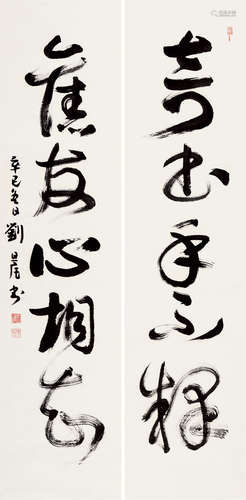 奇書手不釋
舊友心相知
辛巳冬日劉
書